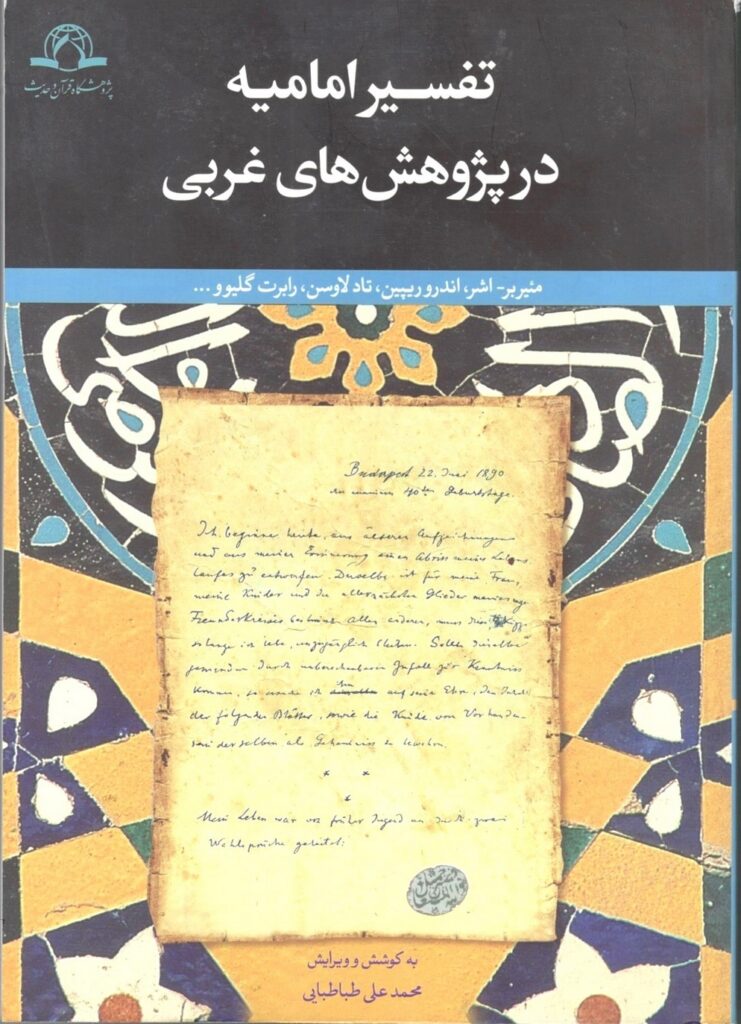 پژوهشگاه قرآن و حدیث
تفسیر امامیه
در پژوهش‌های غربی
مئیر بر- اشر، اندرو ریپین، تاد لاوسن، رابرت گلیوو ...
Budapest 22. Juni 1890
zu meinem 40ten Geburtstage.
Ich beginne heute, aus älteren Aufzeichnungen
und aus meiner Erinnerung einen Abriss meines Lebens
laufes zu entwerfen. Derselbe ist für meine Frau,
meine Kinder und die allernächsten Glieder meines
Freundeskreises bestimmt allen anderen, muss dies
solange ich lebe, unzugänglich bleiben. Sollte dieselbe
jemandem durch unberechenbaren Zufall zur Kenntniss
kommen, so
der folgenden Blätter, sowie die Kunde vom Vorhanden-
sein derselben als Geheimniss zu bewahren.
* *
*
Mein Leben war von früher Jugend an durch zwei
Wahlsprüche geleitet:
به کوشش و ویرایش
محمد علی طباطبایی